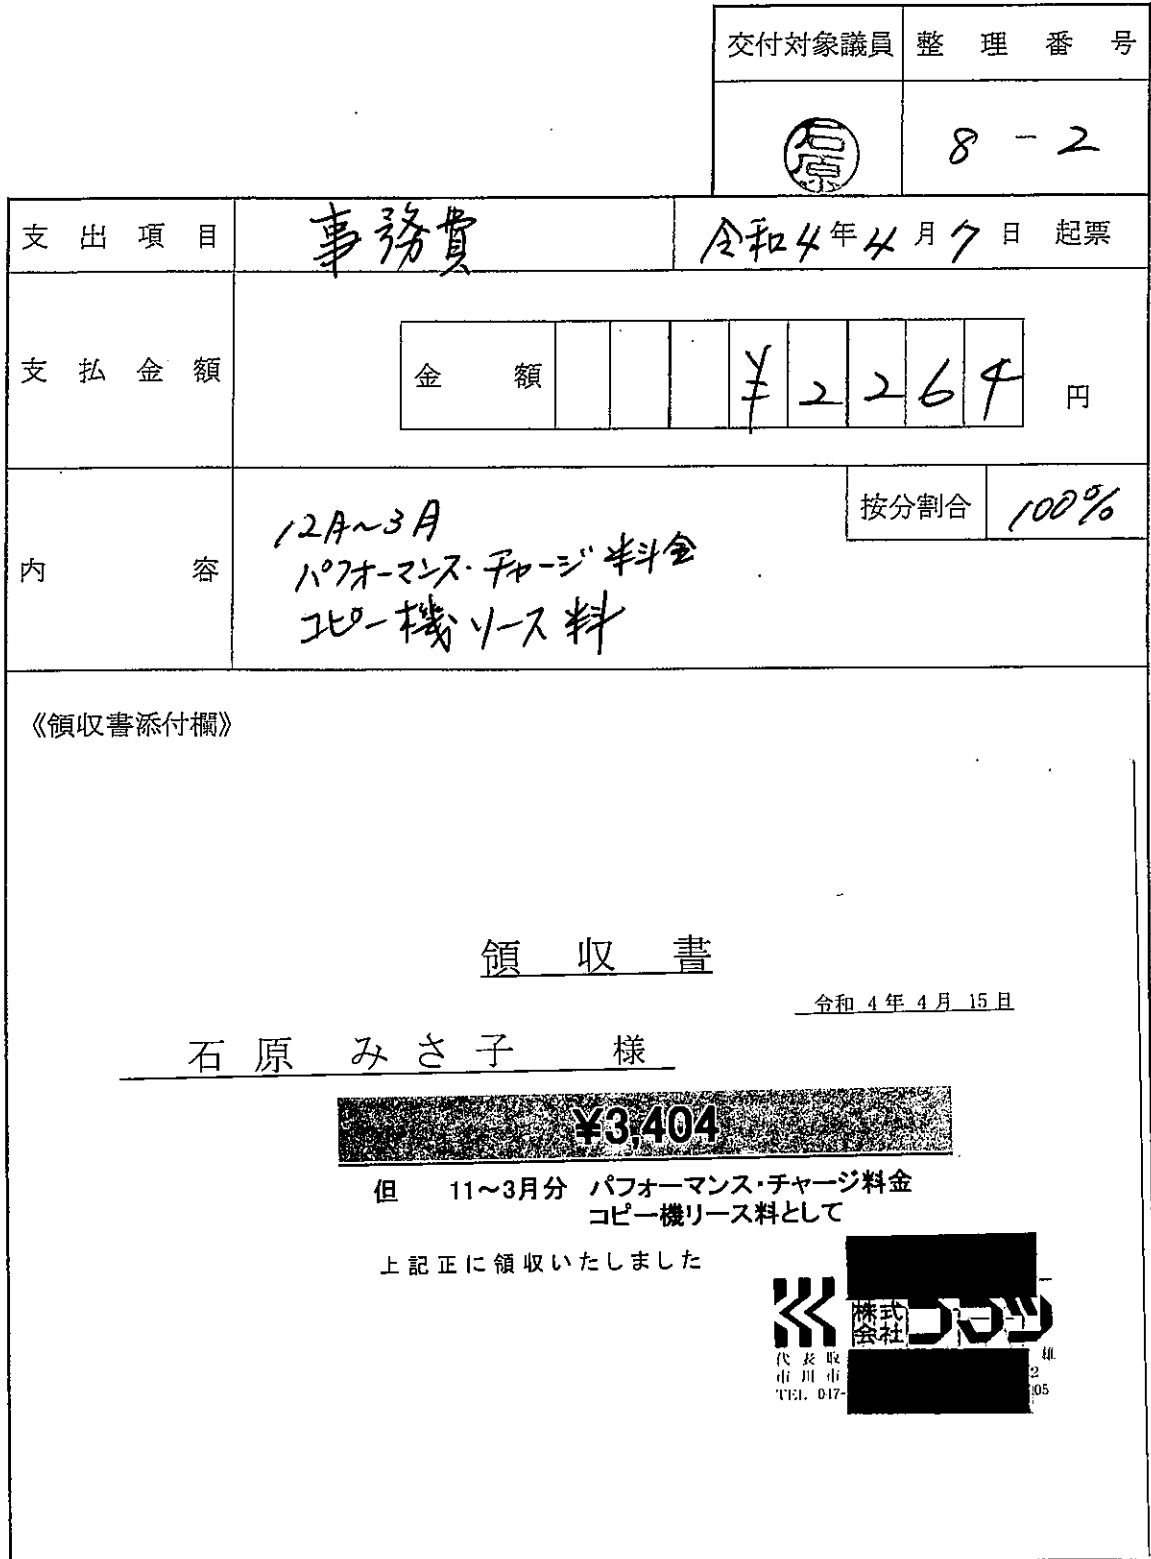 交付対象議員 整理番号
石原 8-2
支出項目 事務費 令和4年4月7日 起票
支払金額 金額 ¥2264 円
内容 按分割合 100%
12月~3月
パフォーマンス・チャージ料金
コピー機リース料
《領収書添付欄》
領収書
令和 4年 4月 15日
石原 みさ子 様
¥3,404
但 11~3月分 パフォーマンス・チャージ料金
コピー機リース料として
上記正に領収いたしました
株式会社コマツ
代表取 雄
市川市 2
TEL. 047- 05